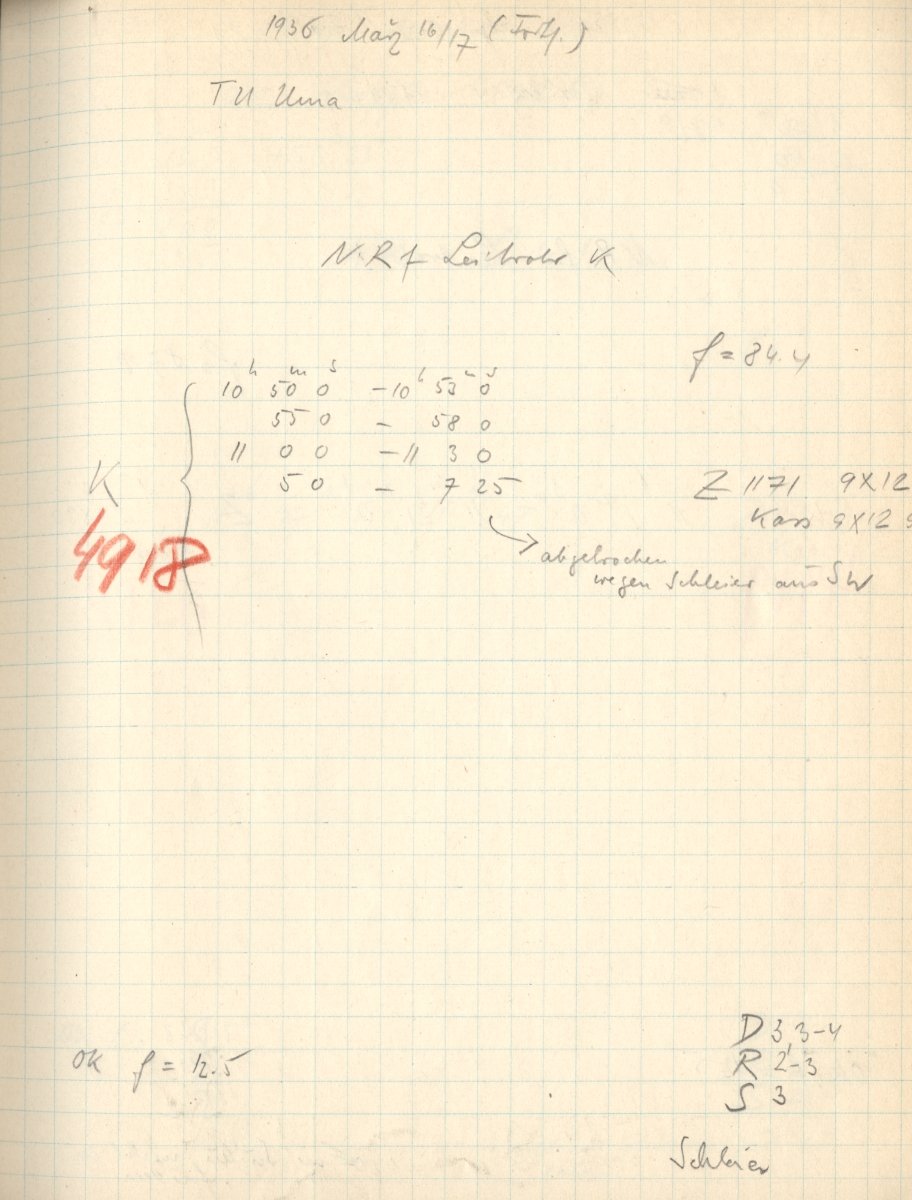 1936 März 16/17 (Forts.)
TU Uma
N.R f Leitrohr K
f = 84.4
10h 50m 0s - 10h 53m 0s
55 0 - 58 0
11 0 0 - 11 3 0
5 0 - 7 25
K
4918
Z 1171 9X12
Kass 9X12 9
abgebrochen
wegen Schleier aus SW
OK f = 12.5
D 3,3-4
R 2-3
S 3
Schleier